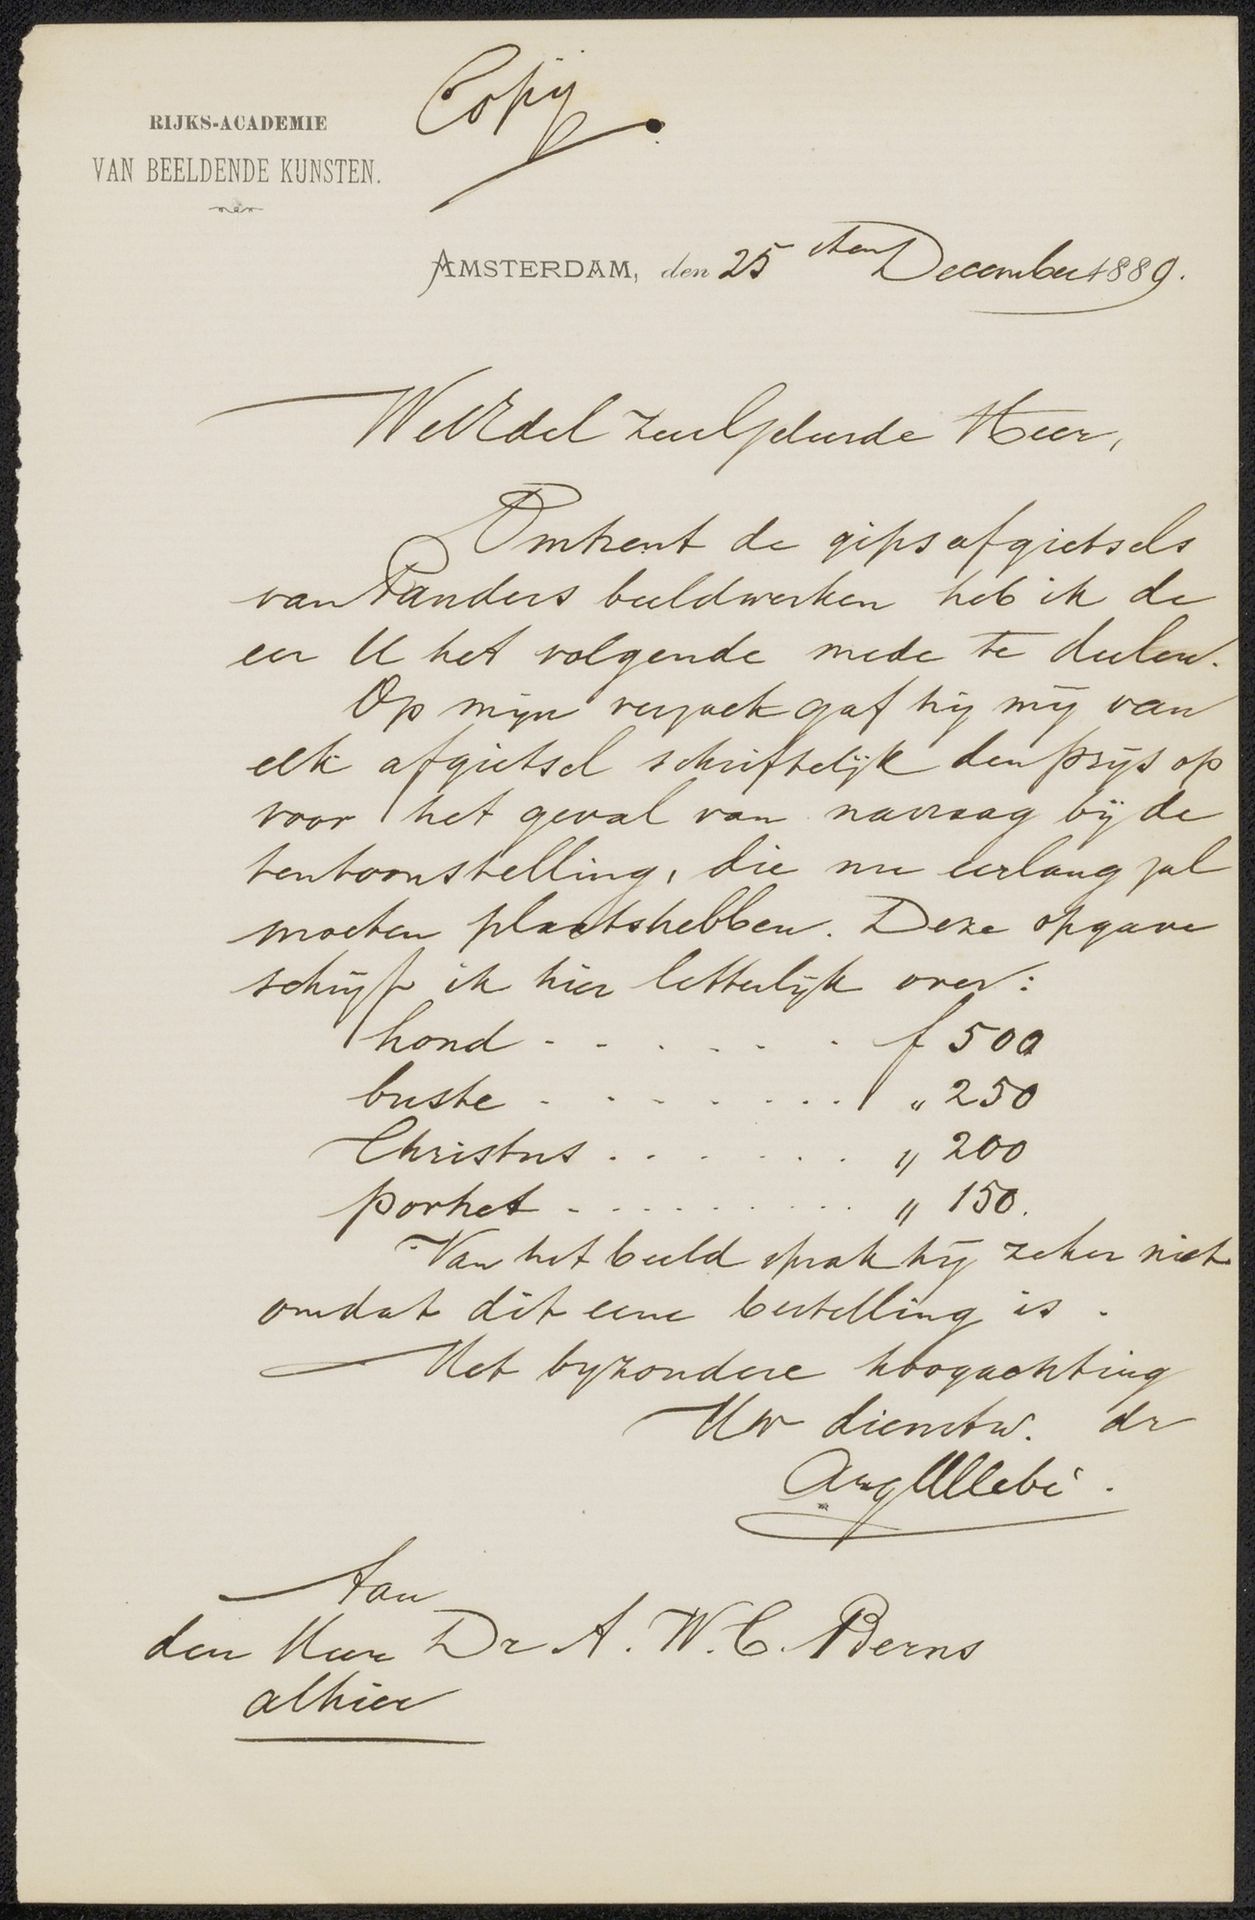 Copij
RIJKS-ACADEMIE
VAN BEELDENDE KUNSTEN.
AMSTERDAM, den 25 sten December 1889.
WelEdel zeerGeleerde Heer,
Omtrent de gipsafgietsels
van Panders beeldwerken heb ik de
eer U het volgende mede te deelen.
Op mijn verzoek gaf hij mij van
elk afgietsel schriftelijk den prijs op
voor het geval van navraag bij de
tentoonstelling, die nu eerlang zal
moeten plaatshebben. Deze opgave
schrijf ik hier letterlijk over:
hond . . . . . . f 500
buste . . . . . . . " 250
Christus . . . . . . " 200
portret . . . . . . . . . " 150.
Van het beeld sprak hij zeker niet
omdat dit eene bestelling is.
Met byzondere hoogachting
Uw dienstw. dr
Aug Allebé.
Aan
den Heer Dr A. W. C. Berns
alhier